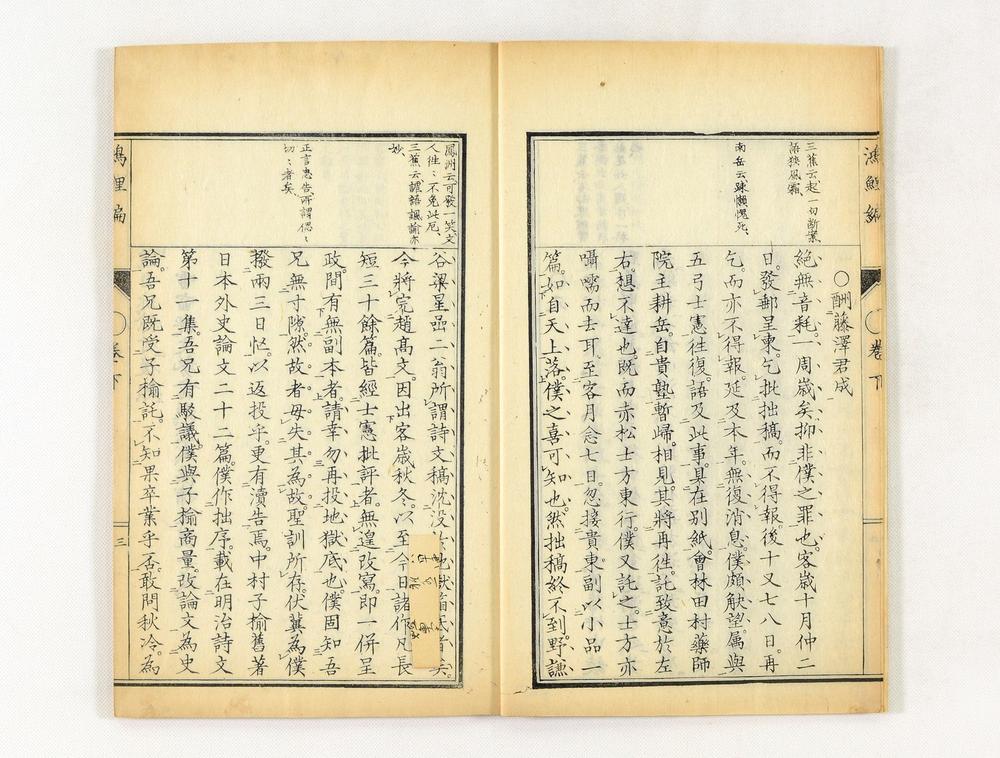 鴻鯉編
卷下
三蕉云起一切斷案
語挾風霜
南岳云疎懶愧死
〇酬藤澤君成
絶無音耗一周歳矣抑非僕之罪也客歳十月仲二
日發郵呈柬乞批拙稿而不得報後十又七八日再
乞而亦不得報延及本年無復消息僕頗觖望属與
五弓士憲往復語及此事具在別紙會林田村藥師
院主耕岳自貴塾暫歸相見其將再往託致意於左
右想不達也既而赤松士方東行僕又託之士方亦
囁嚅而去耳至客月念七日忽接貴柬副以小品一
篇如自天上落僕之喜可知也然拙稿終不到野謙
鳳洲云可發一笑文
人往々不免此厄
三蕉云謔語諷諭亦
妙
正言忠告所謂偲々
切々者矣
谷梁星嵓二翁所謂詩文稿沈没
今將寃趙髙文因出客歳秋冬以至今日諸作凡長
短三十餘篇皆經士憲批評者無遑改寫即一併呈
政間有無副本者請幸勿再投地獄底也僕固知吾
兄無寸隙然故者毋失其為故聖訓所存伏冀為僕
撥兩三日忙以返投乎更有瀆告焉中村子楡舊著
日本外史論文二十二篇僕作拙序載在明治詩文
第十一集吾兄有駁議僕與子楡商量改論文為史
論吾兄既受子楡託不知果卒業乎否敢問秋冷為
鴻鯉編
卷下
三